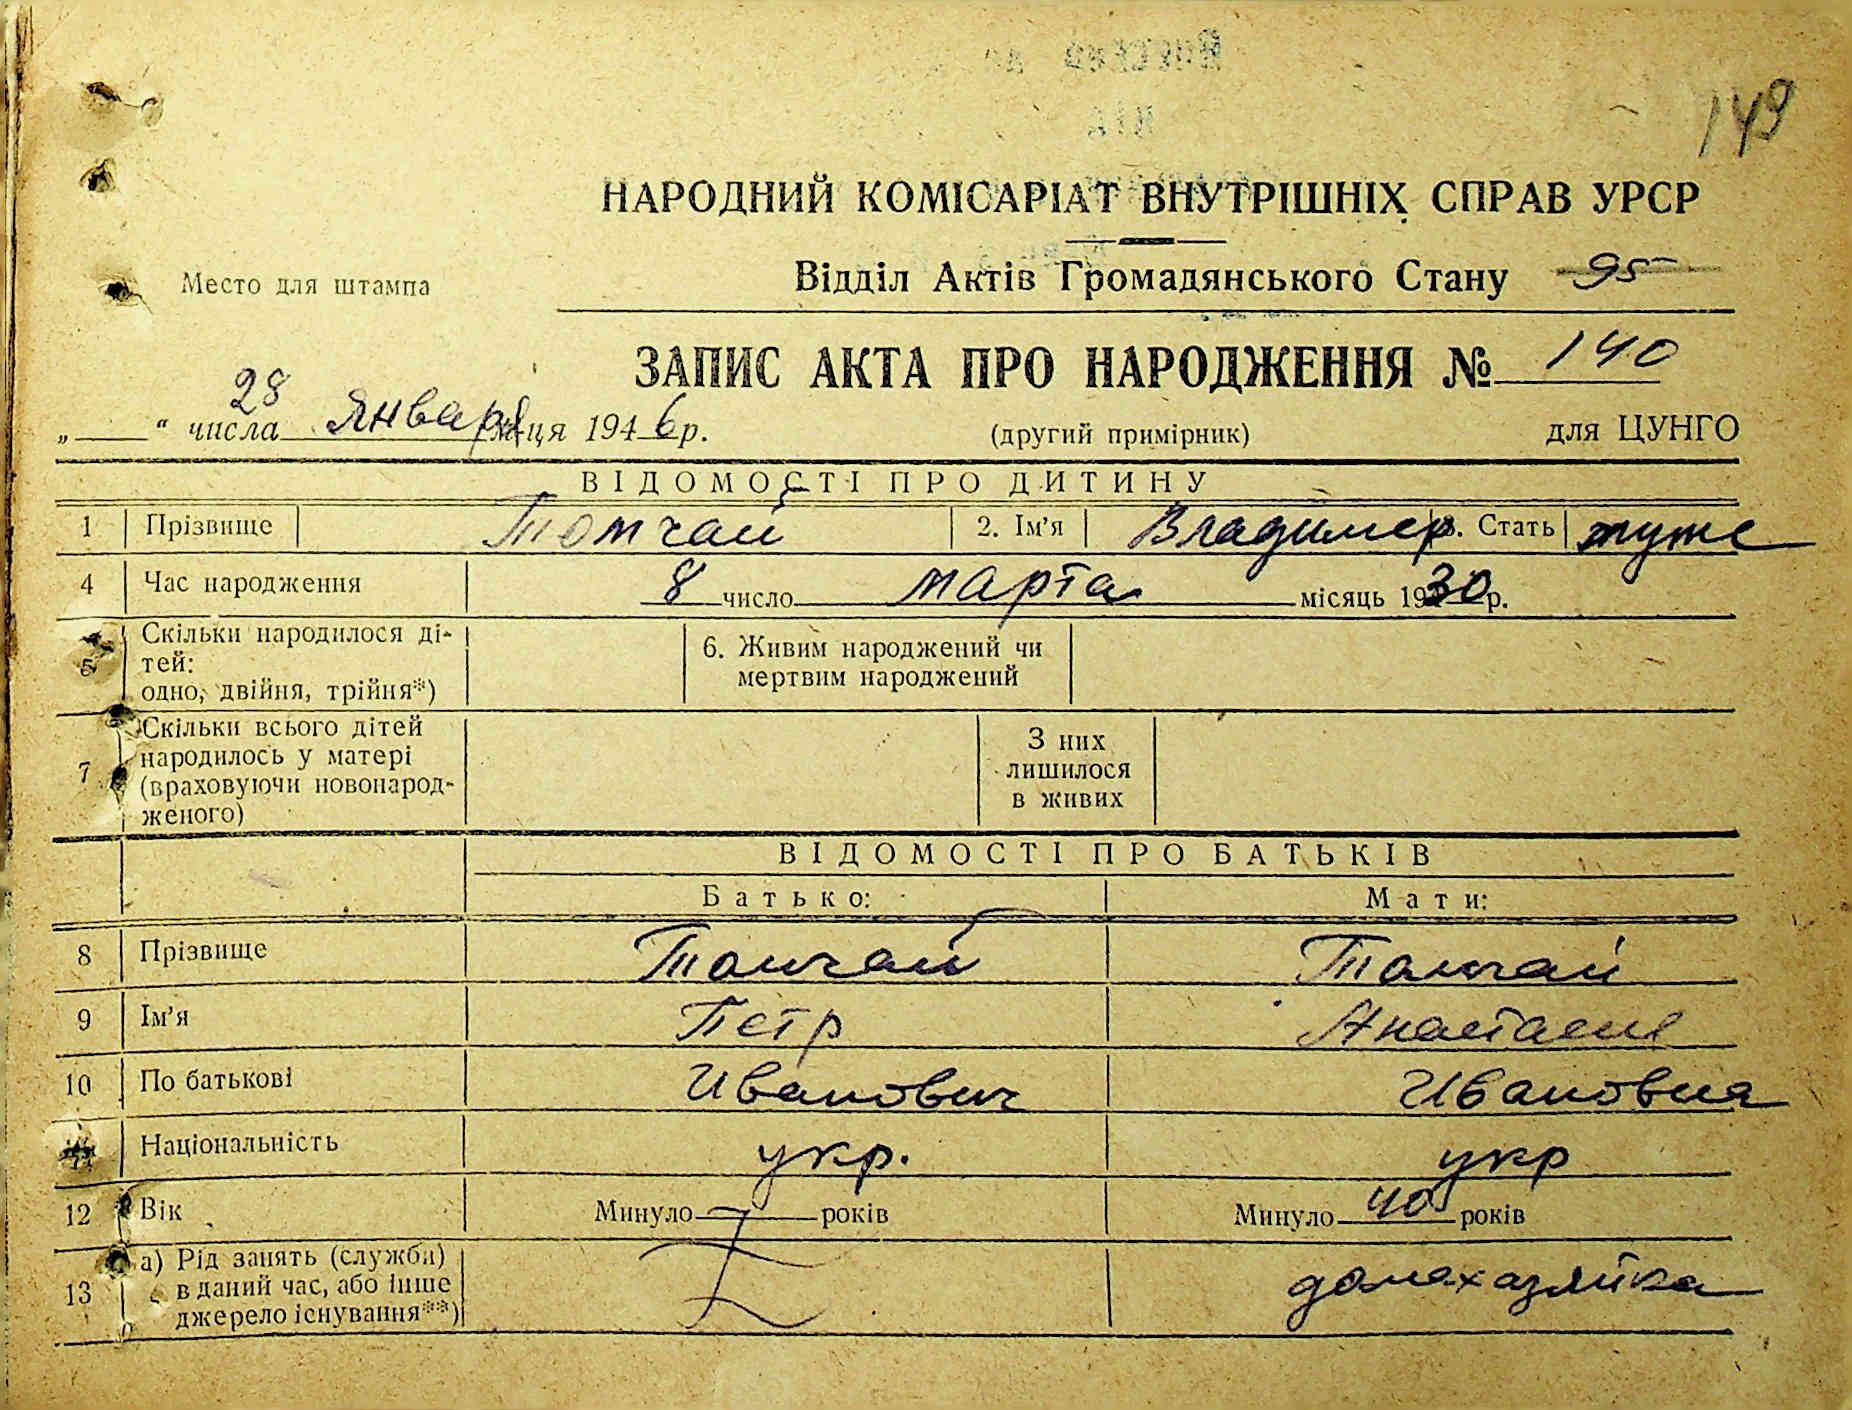 149
НАРОДНИЙ КОМІСАРІАТ ВНУТРІШНІХ СПРАВ УРСР
Место для штампа
Відділ Актів Громадянського Стану 95
ЗАПИС АКТА ПРО НАРОДЖЕННЯ № 140
„28“ числа января м-ця 1946 р. (другий примірник) для ЦУНГО
ВІДОМОСТІ ПРО ДИТИНУ
1 Прізвище Томчай 2. Ім'я Владимер 3. Стать муже
4 Час народження 8 число марта місяць 1930 р.
5 Скільки народилося ді-
тей:
одно, двійня, трійня*)
6. Живим народжений чи
мертвим народжений
7 Скільки всього дітей
народилось у матері
(враховуючи новонарод-
женого)
З них
лишилося
в живих
ВІДОМОСТІ ПРО БАТЬКІВ
Батько: Мати:
8 Прізвище Томчай Томчай
9 Ім'я Петр Анастасия
10 По батькові Иванович Ивановна
11 Національність укр. укр
12 Вік Минуло років Минуло 40 років
13 а) Рід занять (служби)
в даний час, або інше
джерело існування**)
домохазяйка